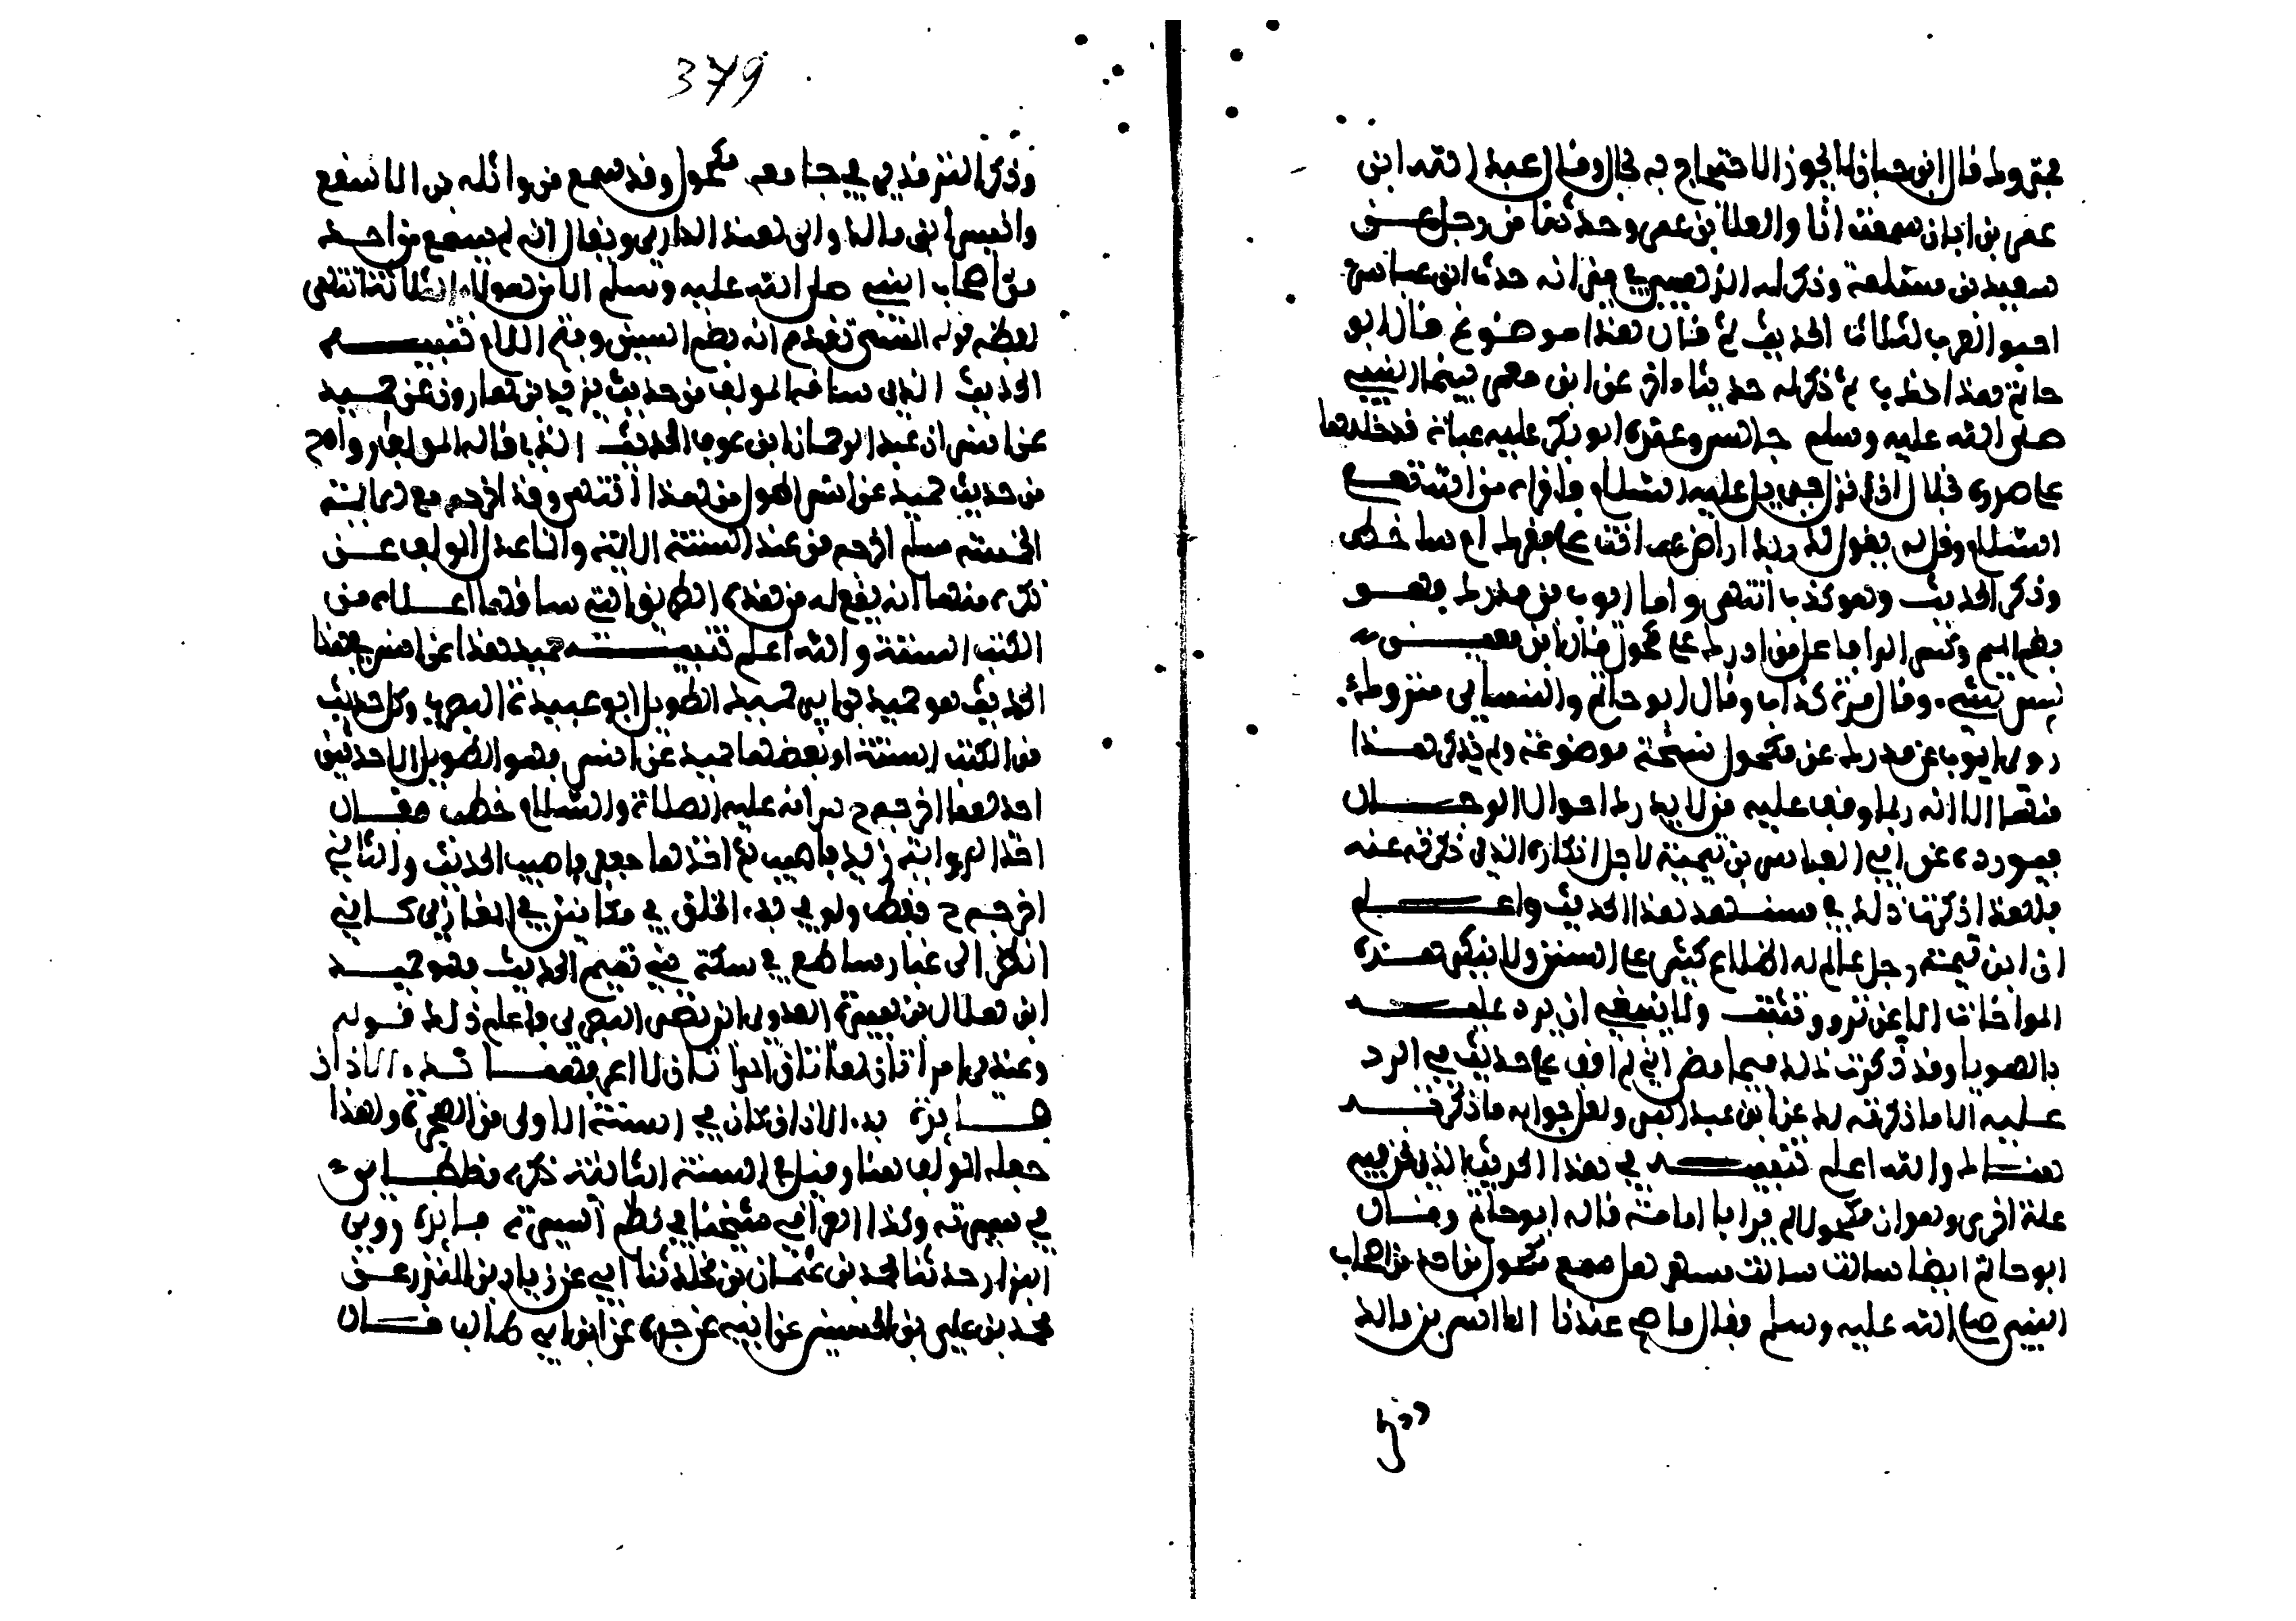 متروك قال ابن حبان لا يجوز الاحتجاج به بحال وقال عبد الله ابن
عمر بن ابان سمعت انا والعلا بن عمر وحدثنا من رجل عن
سعيد بن مسلمة وذكر له الذهبي في ميزانه حديث ابن عباس
احبوا العرب لثلاث الحديث ثم قال هذا موضوع قال ابو
حاتم هذا كذب ثم ذكر له حديثا اخر عن ابن عمر بينما النبي
صلى الله عليه وسلم جالس وعنده ابو بكر عليه عباة قد خللها
على صدره فقال اذ نزل جبريل عليه السلام واقراه من الله
السلام وقل له يقول لك ربك اراض عني انت في فقرك ام ساخط
وذكر الحديث وهو كذب انتهى واما ايوب بن مدرك فهو
بضم الميم وكسر الراء اسم فاعل من ادرك عن مكحول قال ابن معين
ليس بشيء وقال مرة كذاب وقال ابو حاتم والنساءي متروك
روى ايوب بن مدرك عن مكحول نسخة موضوعة ولم يذكر هذا
منها الا انه ربما وقف عليه من لا يدرك احوال الرجال
فيورده عن ابي العباس بن تيمية لاجل انكاره الذي ذكرته عنه
فلهذا ذكرت ذلك في سند هذا الحديث واعلم
ان ابن تيمية رجل عالم له اطلاع كثير على السنن ولا ينكر هذه
المواخات الا عن ترو وتثبت ولا ينبغي ان يرد عليه
بالهوينا وقد ذكرت ذلك فيما مضى اني لم اقف على حديث في الرد
عليه الا ما ذكرته لك عن ابن عبد البر ولعل جوابه ما ذكرته
هنالك والله اعلم تنبيه في هذا الحديث الذي نحن فيه
علة اخرى وهو ان مكحولا لم ير ابا امامة قاله ابو حاتم وقال
ابو حاتم ايضا سالت ابا مسهر هل سمع مكحول من احد من اصحاب
النبي صلى الله عليه وسلم فقال ما صح عندنا الا انس بن مالك
وذكر الترمذي في جامعه مكحول وقد سمع من واثلة بن الاسقع
وانس ابن مالك وابي هند الداري ويقال انه لم يسمع من احد
من اصحاب النبي صلى الله عليه وسلم الا من هولاء الثلاثة انتهى
لفظه قوله السلمي تقدم انه بضم السين وفتح اللام تنبيه
الحديث الذي ساقه المولف من حديث يزيد بن هارون عن حميد
عن انس ان عبد الرحمان ابن عوف الحديث الذي قاله المولف رواه
من حديث حميد عن انس اطول من هذا انتهى وقد اخرجه مع
الخمسة مسلم اخرجه من عند الستة الايمة وانما عدل المولف عن
ذكره منها انه يقع له من هذه الطريق التي ساقها اعلا من
الكتب الستة والله اعلم تنبيه حميد هذا عن انس في هذا
الحديث هو حميد بن ابي حميد الطويل ابو عبيدة البصري وكل حديث
في الكتب الستة او بعضها حميد عن انس فهو الطويل الا حديثين
احدهما اخرجه خ س انه عليه الصلاة والسلام خطب فقال
اخذ الراية زيد فاصيب ثم اخذها جعفر فاصيب الحديث والثاني
اخرجه خ فقط وهو في بدء الخلق في مكانين في المغازي كاني
انظر الى غبار ساطع في سكة بني تميم الحديث فهو حميد
ابن هلال بن هبيرة العدوي ابو نصر البصري فاعلم ذلك قوله
وعندي امراتان هاتان امراتان لا اعرفهما بدء الاذان
فائدة بدء الاذان كان في السنة الاولى من الهجرة ولهذا
جعله المولف هنا وقيل في السنة الثانية ذكره
في سيرته وكذا العراقي شيخنا في نظم السيرة فايدة روى
البزار حدثنا محمد بن عثمان بن مخلد ثنا ابي عن زياد بن المنذر عن
محمد بن علي بن الحسين عن ابيه عن جده عن علي بن ابي طالب قال
379